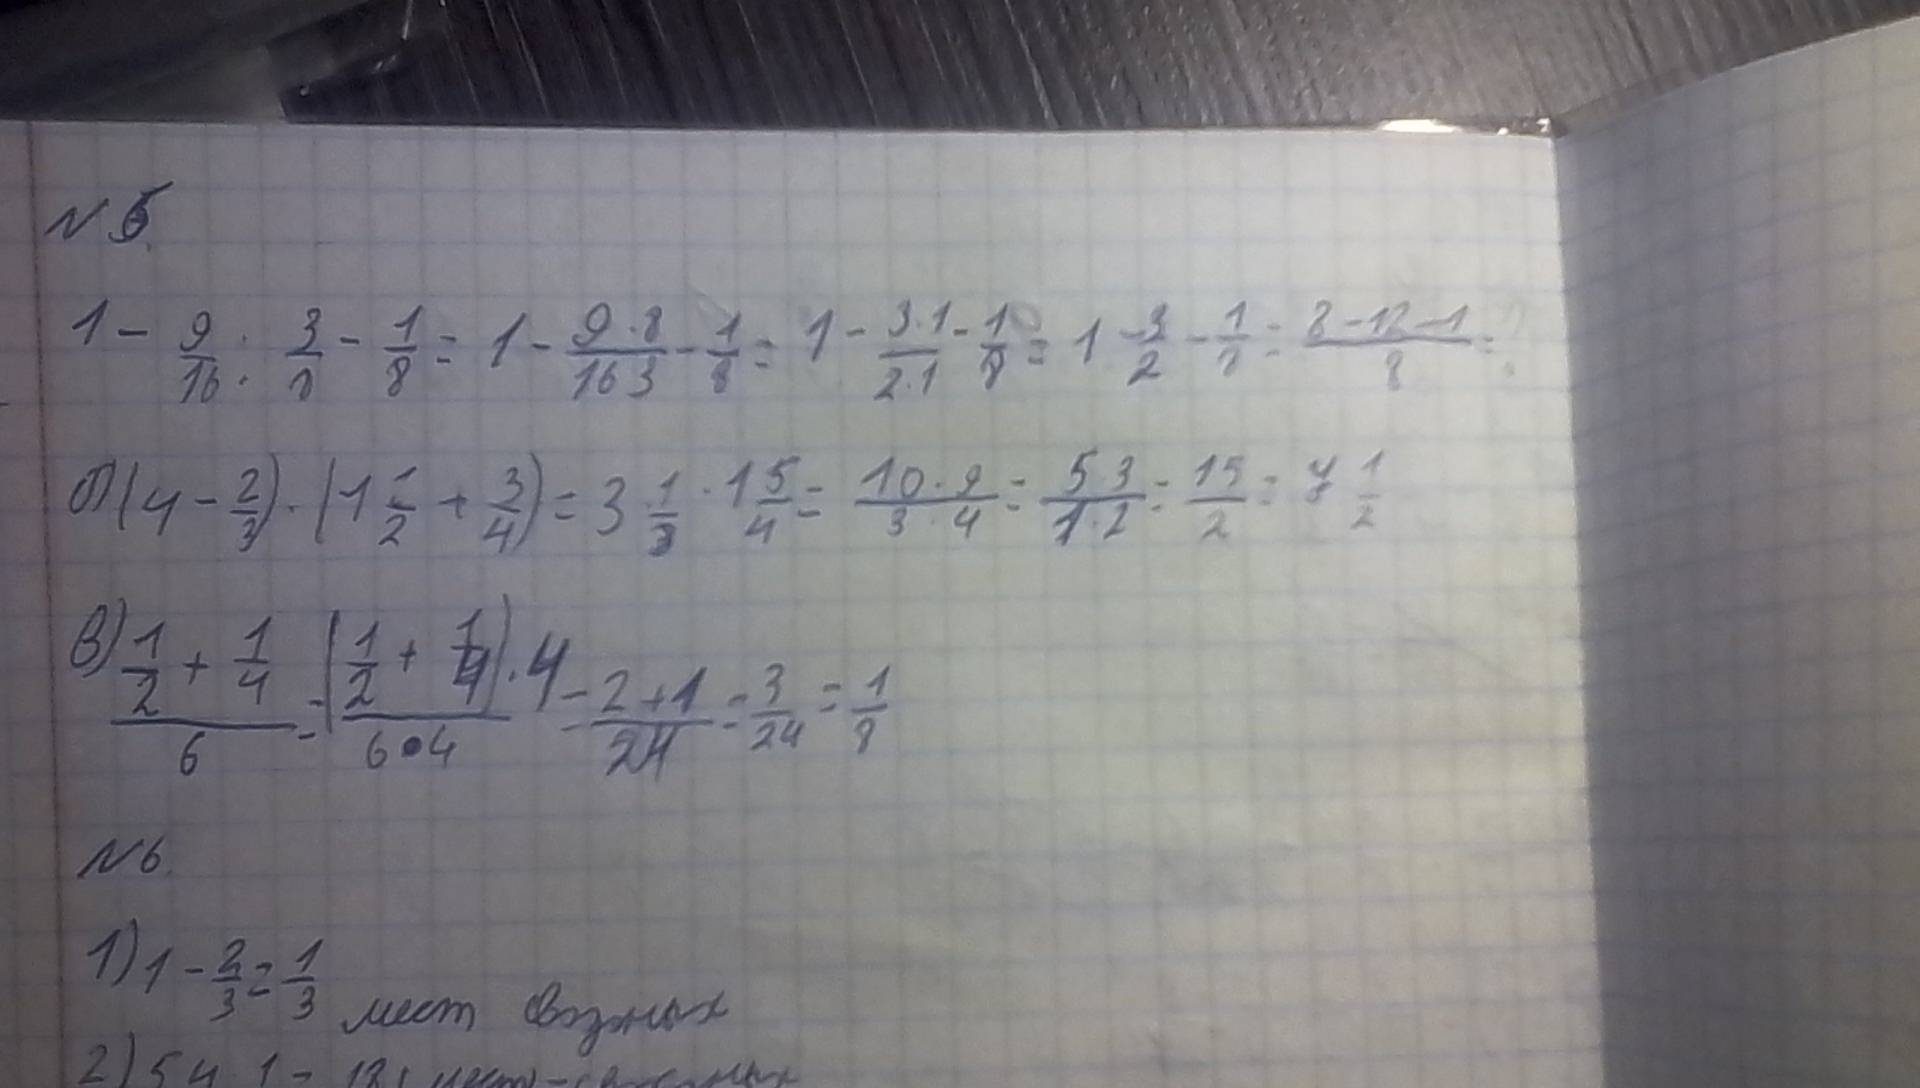 N 5.
1 - 9/16 : 3/8 - 1/8 = 1 - 9·8/16 3 - 1/8 = 1 - 3·1/2·1 - 1/8 = 1 - 3/2 - 1/8 = 8-12-1/8 = ?
б) (4 - 2/3) · (1 1/2 + 3/4) = 3 1/3 · 1 5/4 = 10·9/3·4 = 5·3/1·2 = 15/2 = 7 1/2
в) 1/2 + 1/4 / 6 = (1/2 + 1/4)·4 / 6·4 = 2+1/24 = 3/24 = 1/8
N 6.
1) 1 - 2/3 = 1/3 мест
2) 54 · 1 = 18